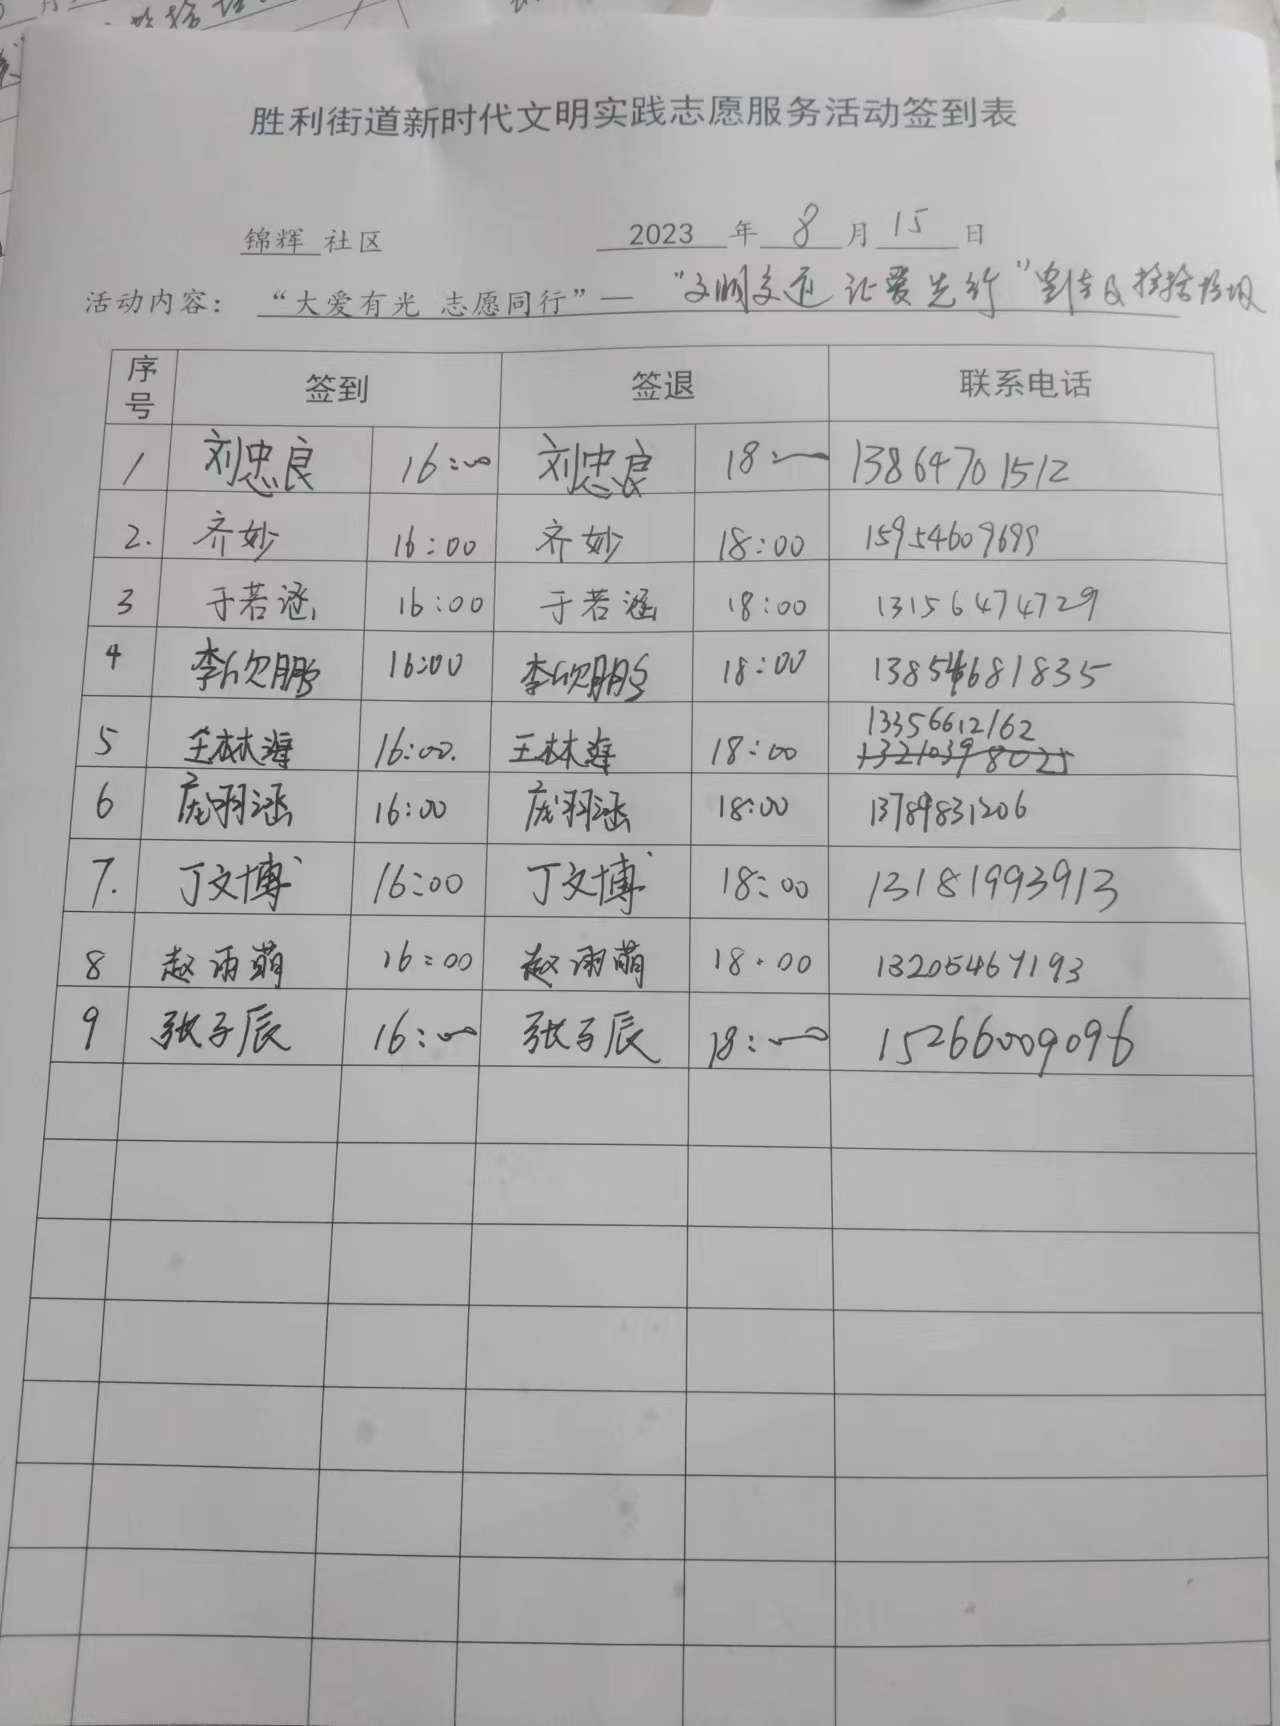 胜利街道新时代文明实践志愿服务活动签到表
锦辉 社区 2023 年 8 月 15 日
活动内容： “大爱有光 志愿同行”— “文明交通 让爱先行”宣传及捡拾垃圾
序号 签到 签退 联系电话
1 刘忠良 16:00 刘忠良 18:00 13864701512
2. 齐妙 16:00 齐妙 18:00 15954609699
3 于若涵 16:00 于若涵 18:00 13156474729
4 李欣鹏 16:00 李欣鹏 18:00 13854681835
5 王林海 16:00. 王林海 18:00 13356612162
13210398025
6 庞羽涵 16:00 庞羽涵 18:00 13789831206
7. 丁文博 16:00 丁文博 18:00 13181993913
8 赵雨萌 16:00 赵雨萌 18:00 13205467193
9 张子辰 16:00 张子辰 18:00 15266009096